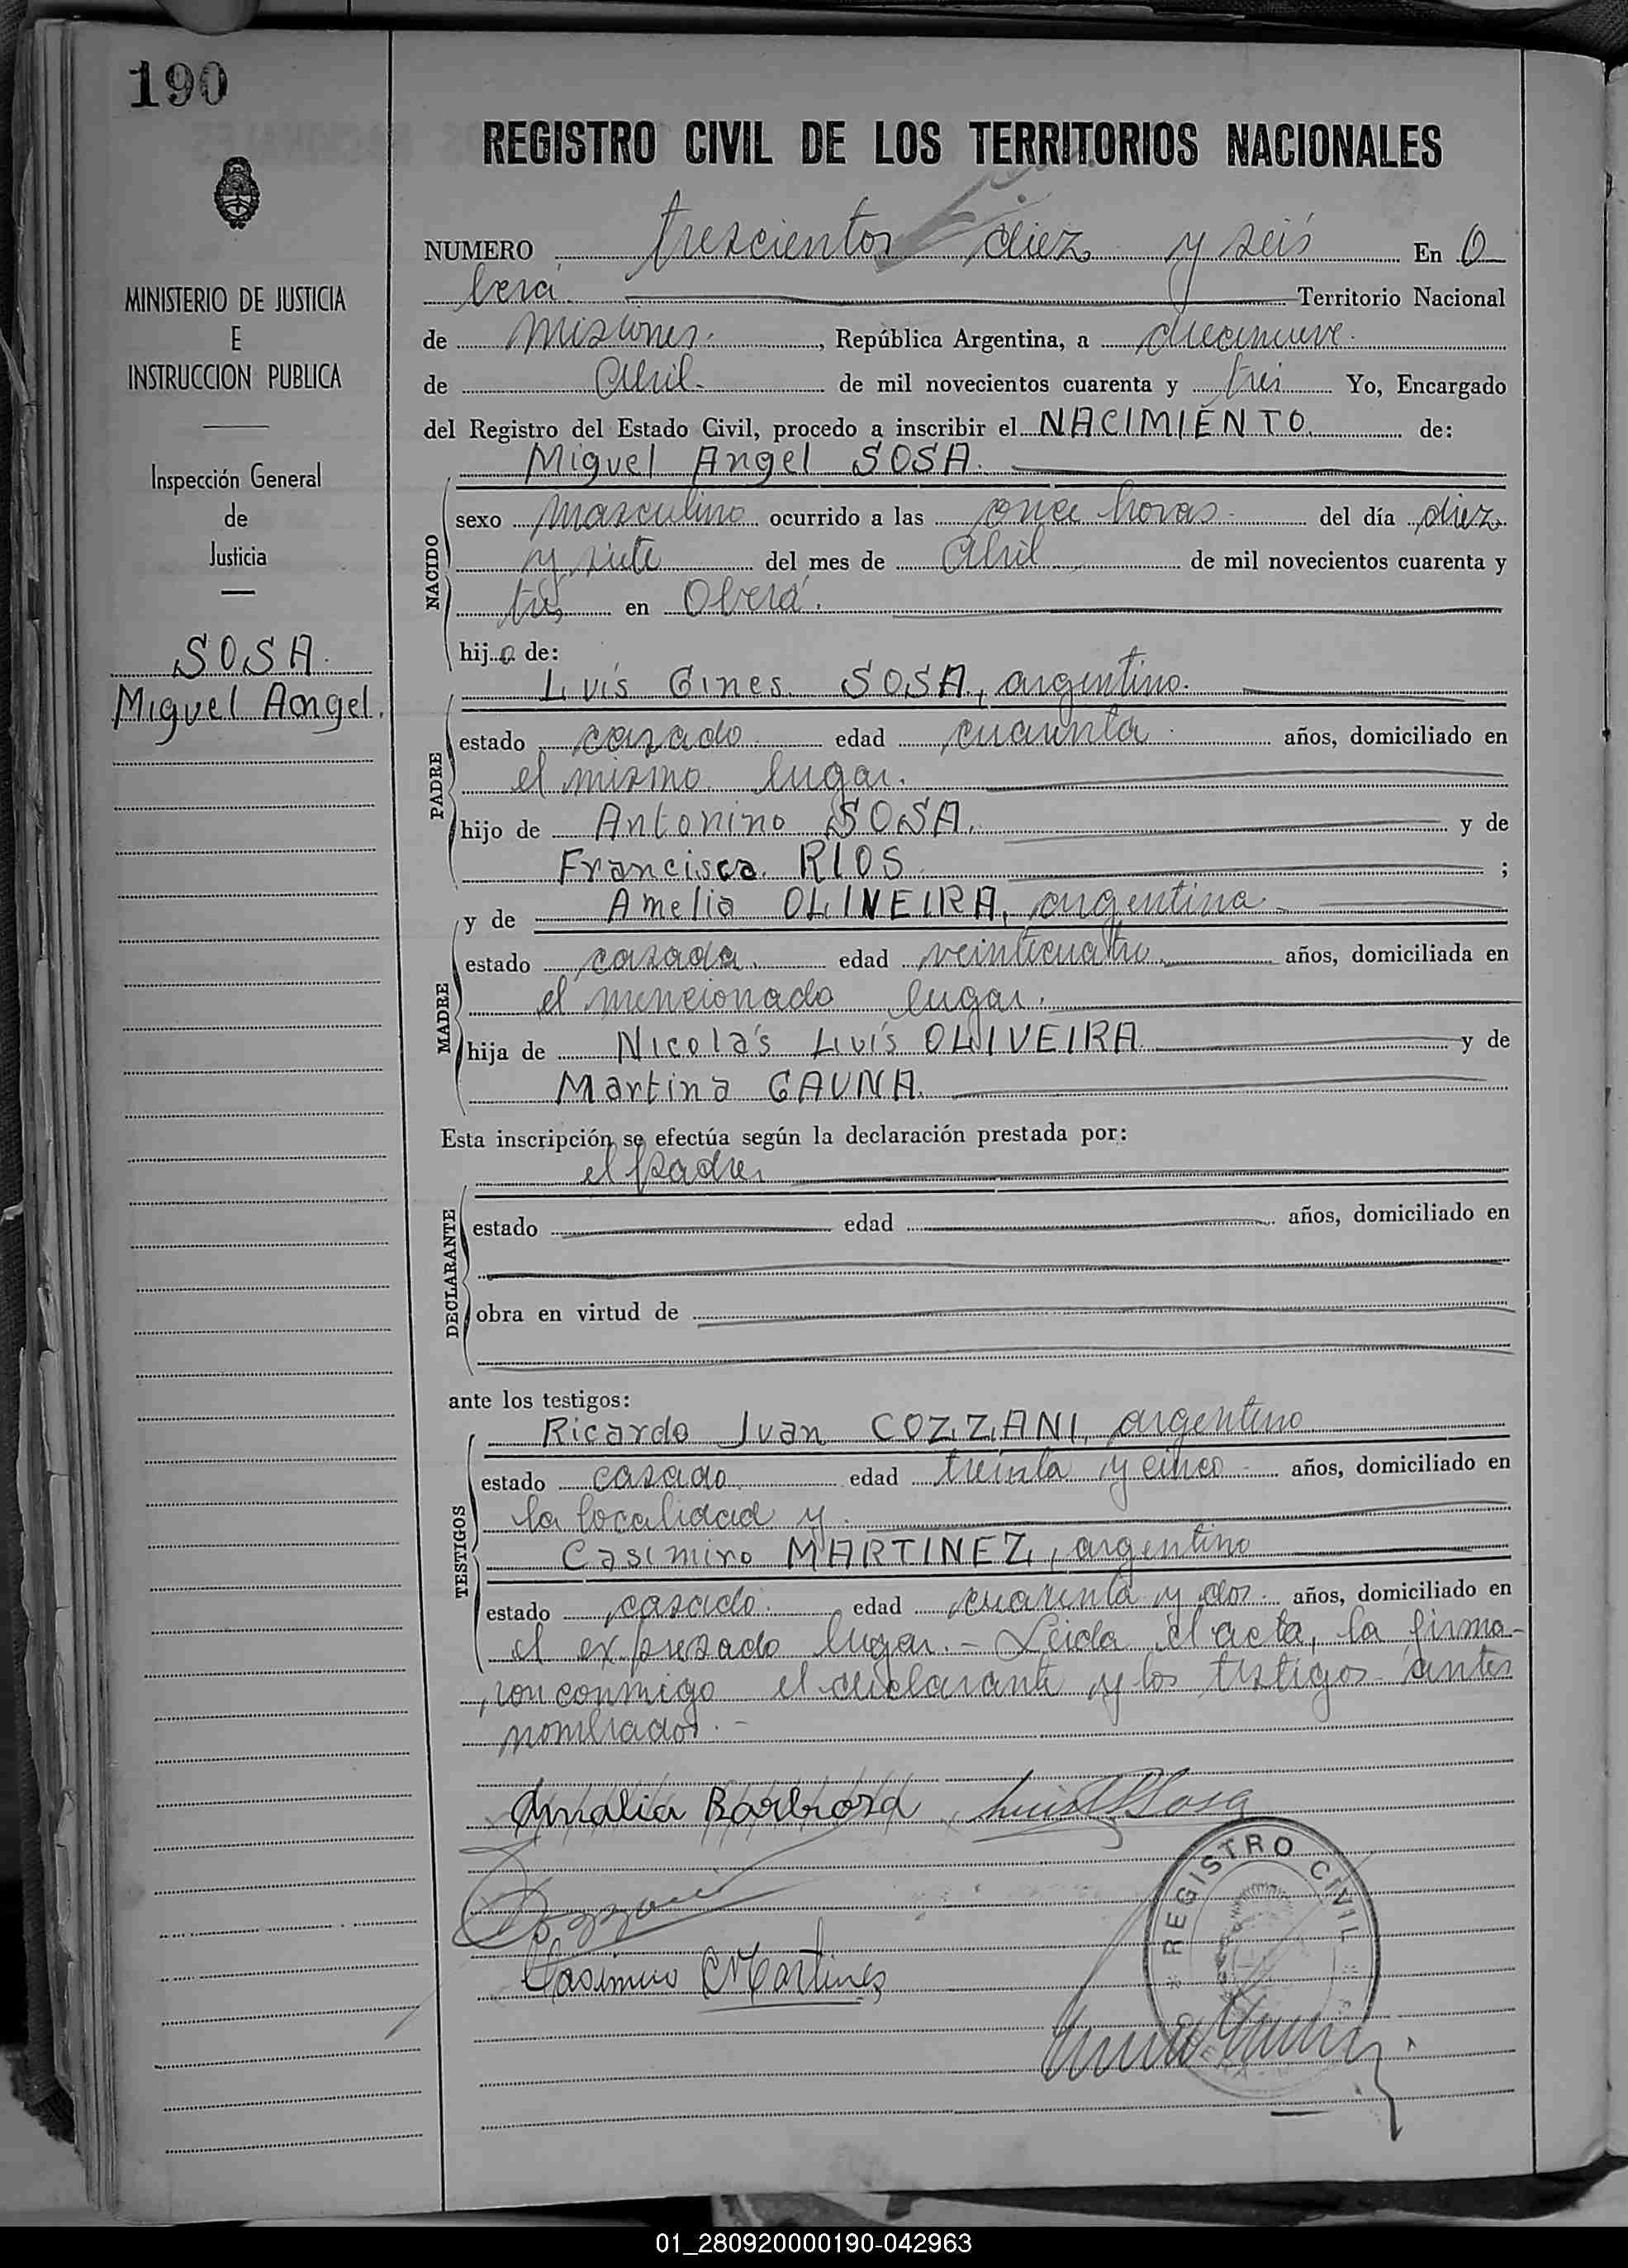 190
REGISTRO CIVIL DE LOS TERRITORIOS NACIONALES
MINISTERIO DE JUSTICIA
E
INSTRUCCION PUBLICA
Inspección General
de
Justicia
SOSA
Miguel Angel.
NUMERO trescientos diez y seis En O
berá. Territorio Nacional
de Misiones. , República Argentina, a diecinueve.
de Abril. de mil novecientos cuarenta y tres Yo, Encargado
del Registro del Estado Civil, procedo a inscribir el NACIMIENTO de:
Miguel Angel SOSA.
NACIDO
sexo masculino ocurrido a las once horas del día diez
y siete del mes de Abril de mil novecientos cuarenta y
tres en Oberá.
hijo de:
Luis Gines SOSA, argentino.
PADRE
estado casado edad cuarenta años, domiciliado en
el mismo lugar.
hijo de Antonino SOSA. y de
Francisca RIOS ;
y de Amelia OLIVEIRA, argentina
MADRE
estado casada. edad veinticuatro años, domiciliada en
el mencionado lugar.
hija de Nicolás Luis OLIVEIRA y de
Martina GAUNA.
Esta inscripción se efectúa según la declaración prestada por:
el padre.
DECLARANTE
estado edad años, domiciliado en
obra en virtud de
ante los testigos:
Ricardo Juan COZZANI, argentino
TESTIGOS
estado casado edad treinta y cinco años, domiciliado en
la localidad y
Casimiro MARTINEZ, argentino
estado casado. edad cuarenta y dos. años, domiciliado en
el expresado lugar.- Leida el acta, la firma-
ron conmigo el declarante y los testigos antes
nombrados.-
Amalia Barboza Luis G Sosa
Cozzani
Casimiro Martines
REGISTRO CIVIL
01_280920000190-042963